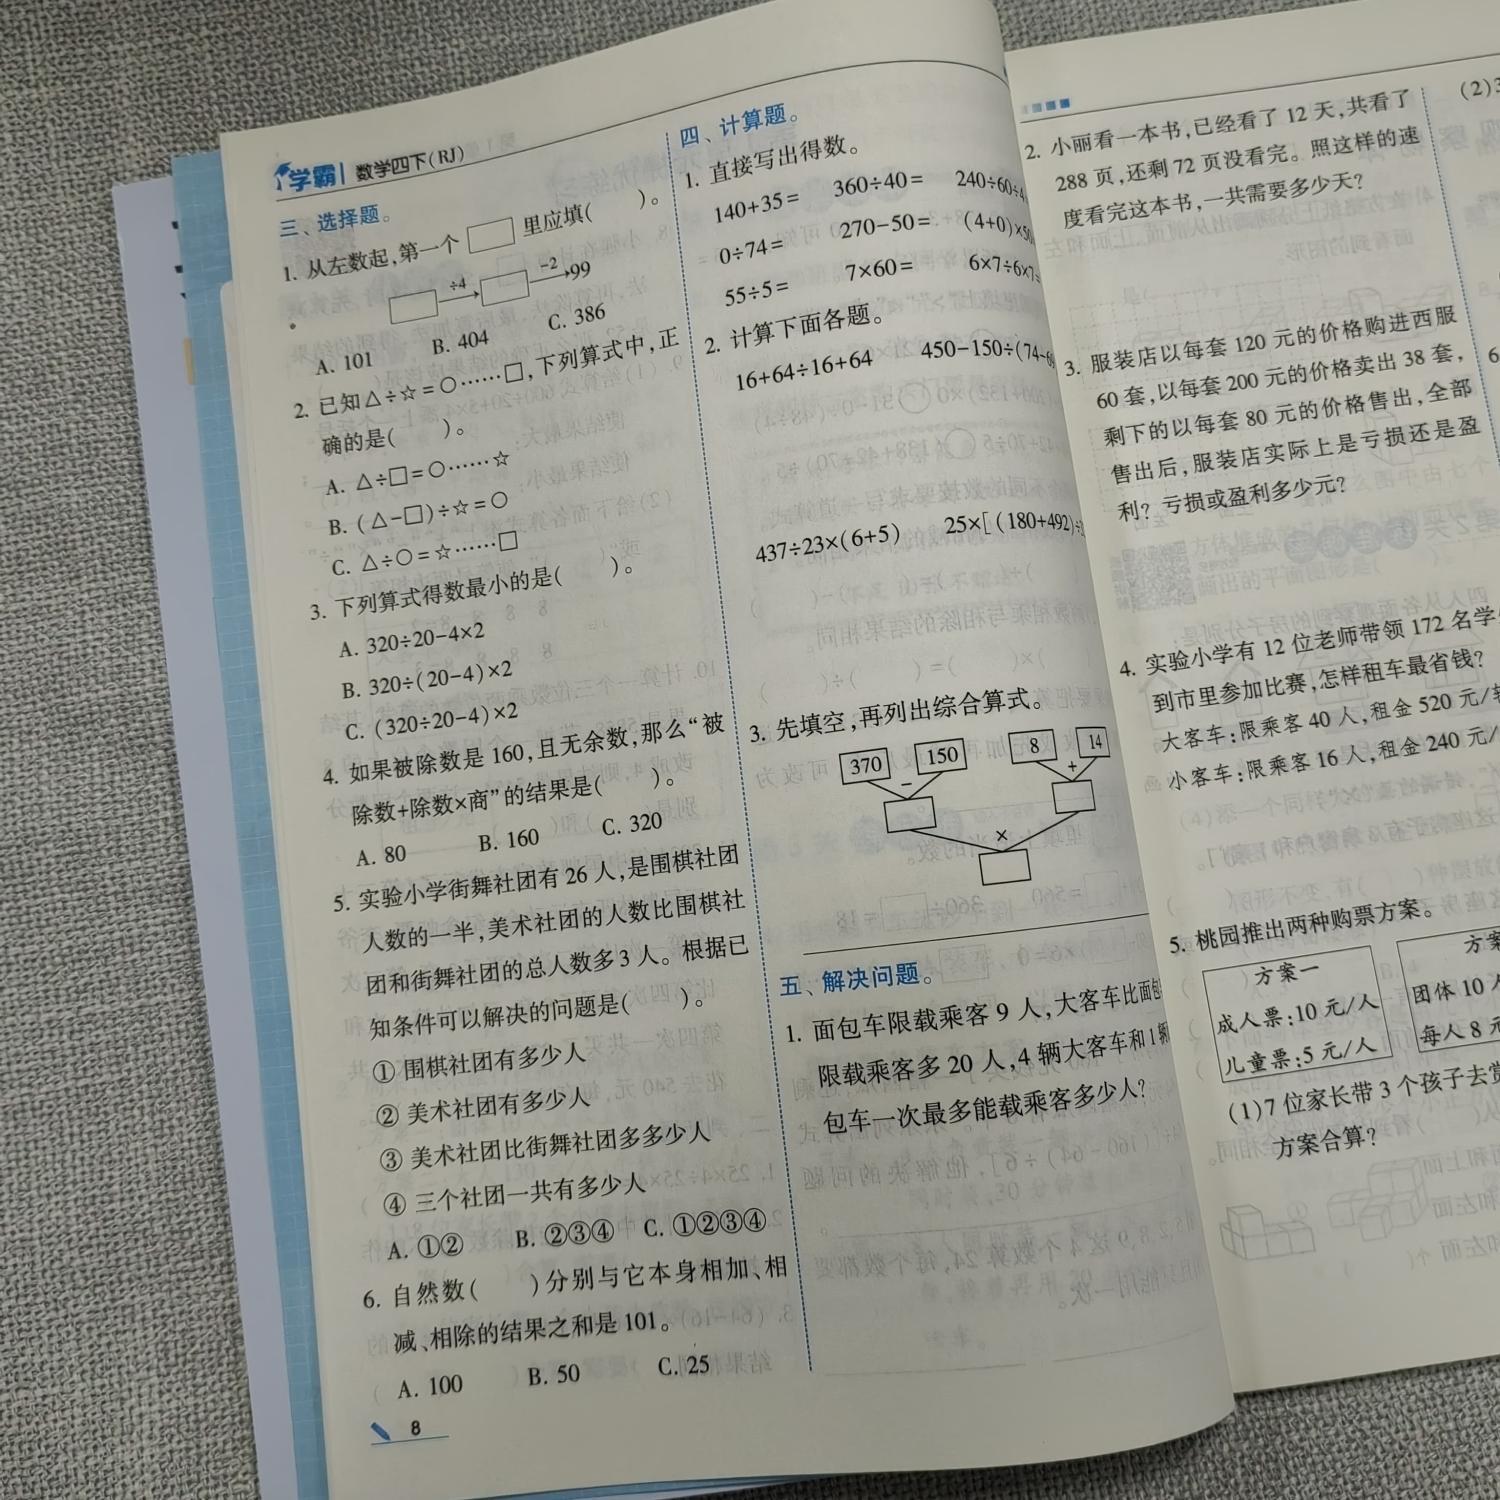 学霸 数学四下(RJ)
三、选择题。
1. 从左数起,第一个□里应填(  )。
□ ÷4→ □ −2→ 99
A. 101 B. 404 C. 386
2. 已知△÷☆=○……□,下列算式中,正
确的是(  )。
A. △÷□=○……☆
B. (△−□)÷☆=○
C. △÷○=☆……□
3. 下列算式得数最小的是(  )。
A. 320÷20−4×2
B. 320÷(20−4)×2
C. (320÷20−4)×2
4. 如果被除数是 160,且无余数,那么“被
除数+除数×商”的结果是(  )。
A. 80 B. 160 C. 320
5. 实验小学街舞社团有 26 人,是围棋社团
人数的一半,美术社团的人数比围棋社
团和街舞社团的总人数多 3 人。根据已
知条件可以解决的问题是(  )。
① 围棋社团有多少人
② 美术社团有多少人
③ 美术社团比街舞社团多多少人
④ 三个社团一共有多少人
A. ①② B. ②③④ C. ①②③④
6. 自然数(  )分别与它本身相加、相
减、相除的结果之和是 101。
A. 100 B. 50 C. 25
8
四、计算题。
1. 直接写出得数。
140+35= 360÷40= 240÷60÷
0÷74= 270−50= (4+0)×
55÷5= 7×60= 6×7÷6×7
2. 计算下面各题。
16+64÷16+64 450−150÷(74−
437÷23×(6+5) 25×[(180+492)÷
3. 先填空,再列出综合算式。
370 150 8 14
− +
×
五、解决问题。
1. 面包车限载乘客 9 人,大客车比面包
限载乘客多 20 人,4 辆大客车和 1 辆
包车一次最多能载乘客多少人?
2. 小丽看一本书,已经看了 12 天,共看了
288 页,还剩 72 页没看完。照这样的速
度看完这本书,一共需要多少天?
3. 服装店以每套 120 元的价格购进西服
60 套,以每套 200 元的价格卖出 38 套,
剩下的以每套 80 元的价格售出,全部
售出后,服装店实际上是亏损还是盈
利? 亏损或盈利多少元?
4. 实验小学有 12 位老师带领 172 名学
到市里参加比赛,怎样租车最省钱?
大客车:限乘客 40 人,租金 520 元/
小客车:限乘客 16 人,租金 240 元/
5. 桃园推出两种购票方案。
方案一
成人票:10 元/人
儿童票:5 元/人
方案
团体 10
每人 8 元
(1)7 位家长带 3 个孩子去
方案合算?
(2)
6